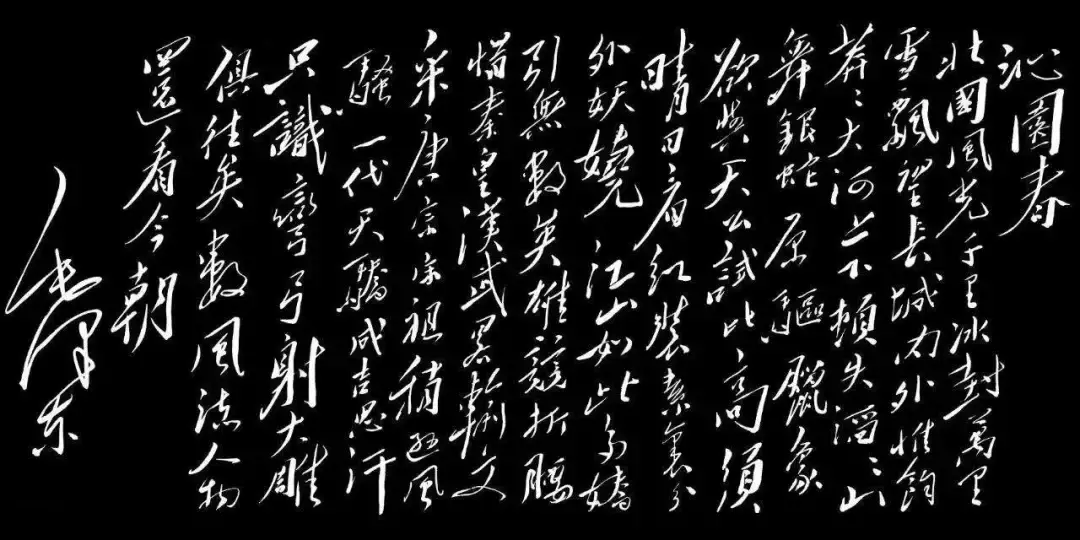 沁園春
北國風光千里冰封萬里
雪飄望長城内外惟餘
莽〻大河上下頓失滔〻山
舞銀蛇原驅臘象
欲與天公試比高須
晴日看红裝素裹分
外妖嬈江山如此多嬌
引無數英雄競折腰
惜秦皇漢武略輸文
采唐宗宋祖稍遜風
騷一代天驕成吉思汗
只識彎弓射大雕
俱往矣數風流人物
還看今朝
毛澤东